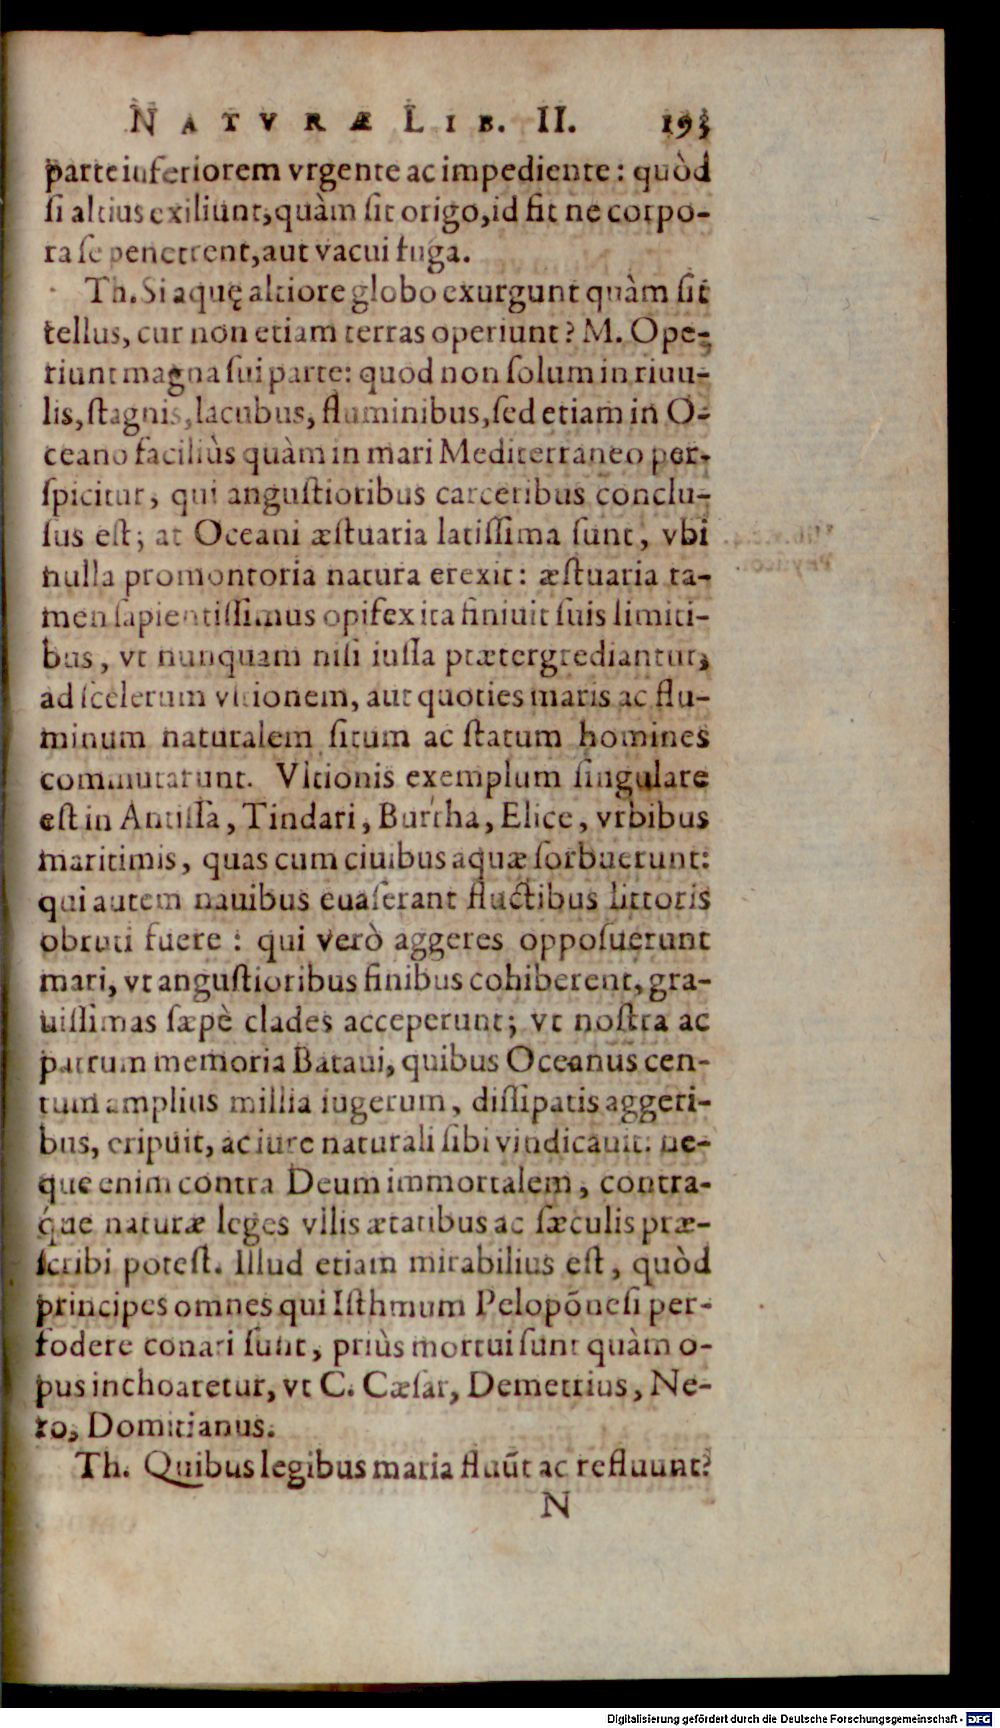 NATVRÆ LIB. II. 193
parte inferiorem vrgente ac impediente: quòd
ſi altius exiliunt, quàm ſit origo, id fit ne corpo-
ra ſe penetrent, aut vacui fuga.
Th. Si aquę altiore globo exurgunt quàm ſit
tellus, cur non etiam terras operiunt? M. Ope-
riunt magna ſui parte: quod non ſolum in riuu-
lis, ſtagnis, lacubus, fluminibus, ſed etiam in O-
ceano faciliùs quàm in mari Mediterraneo per-
ſpicitur, qui anguſtioribus carceribus conclu-
ſus eſt; at Oceani æſtuaria latiſſima ſunt, vbi
nulla promontoria natura erexit: æſtuaria ta-
men ſapientiſſimus opifex ita finiuit ſuis limiti-
bus, vt nunquam niſi iuſſa prætergrediantur,
ad ſcelerum vltionem, aut quoties maris ac flu-
minum naturalem ſitum ac ſtatum homines
commutarunt. Vltionis exemplum ſingulare
eſt in Antiſſa, Tindari, Burrha, Elice, vrbibus
maritimis, quas cum ciuibus aquæ ſorbuerunt:
qui autem nauibus euaſerant fluctibus littoris
obruti fuere: qui verò aggeres oppoſuerunt
mari, vt anguſtioribus finibus cohiberent, gra-
uiſſimas ſæpè clades acceperunt; vt noſtra ac
patrum memoria Bataui, quibus Oceanus cen-
tum amplius millia iugerum, diſſipatis aggeri-
bus, eripuit, ac iure naturali ſibi vindicauit. ne-
que enim contra Deum immortalem, contra-
q́ue naturæ leges vllis ætatibus ac ſæculis præ-
ſcribi poteſt. Illud etiam mirabilius eſt, quòd
principes omnes qui Iſthmum Pelopōneſi per-
fodere conati ſunt, priùs mortui ſunt quàm o-
pus inchoaretur, vt C. Cæſar, Demetrius, Ne-
ro, Domitianus.
Th. Quibus legibus maria fluūt ac refluunt?
N
Digitalisierung gefördert durch die Deutsche Forschungsgemeinschaft - DFG